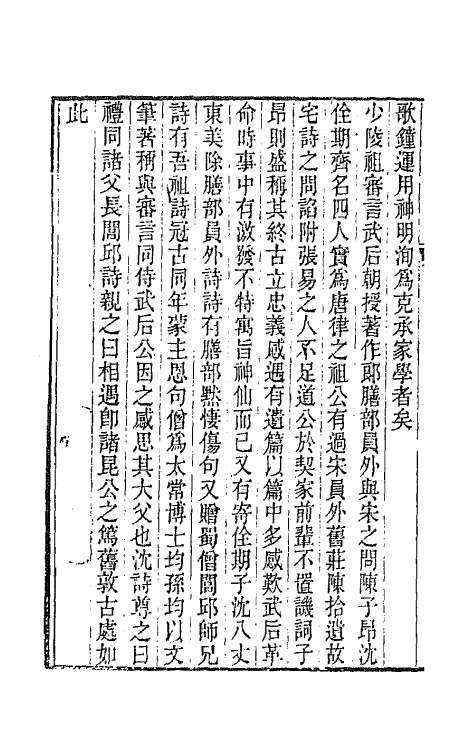 歌鐘運用神明洵爲克承家學者矣
少陵祖審言武后朝授著作郎膳部員外與宋之問陳子昂沈
佺期齊名四人實爲唐律之祖公有過宋員外舊莊陳拾遺故
宅詩之問諂附張易之人不足道公於契家前輩不置譏詞子
昂則盛稱其終古立忠義感遇有遺篇以篇中多感歎武后革
命時事中有激發不特寓旨神仙而已又有寄佺期子沈八丈
東美除膳部員外詩詩有膳部默悽傷句又贈蜀僧閭邱師兄
詩有吾祖詩冠古同年蒙主恩句僧爲太常博士均孫均以文
筆著稱與審言同侍武后公因之感思其大父也沈詩尊之曰
禮同諸父長閭邱詩親之曰相遇即諸昆公之篤舊敦古處如
此